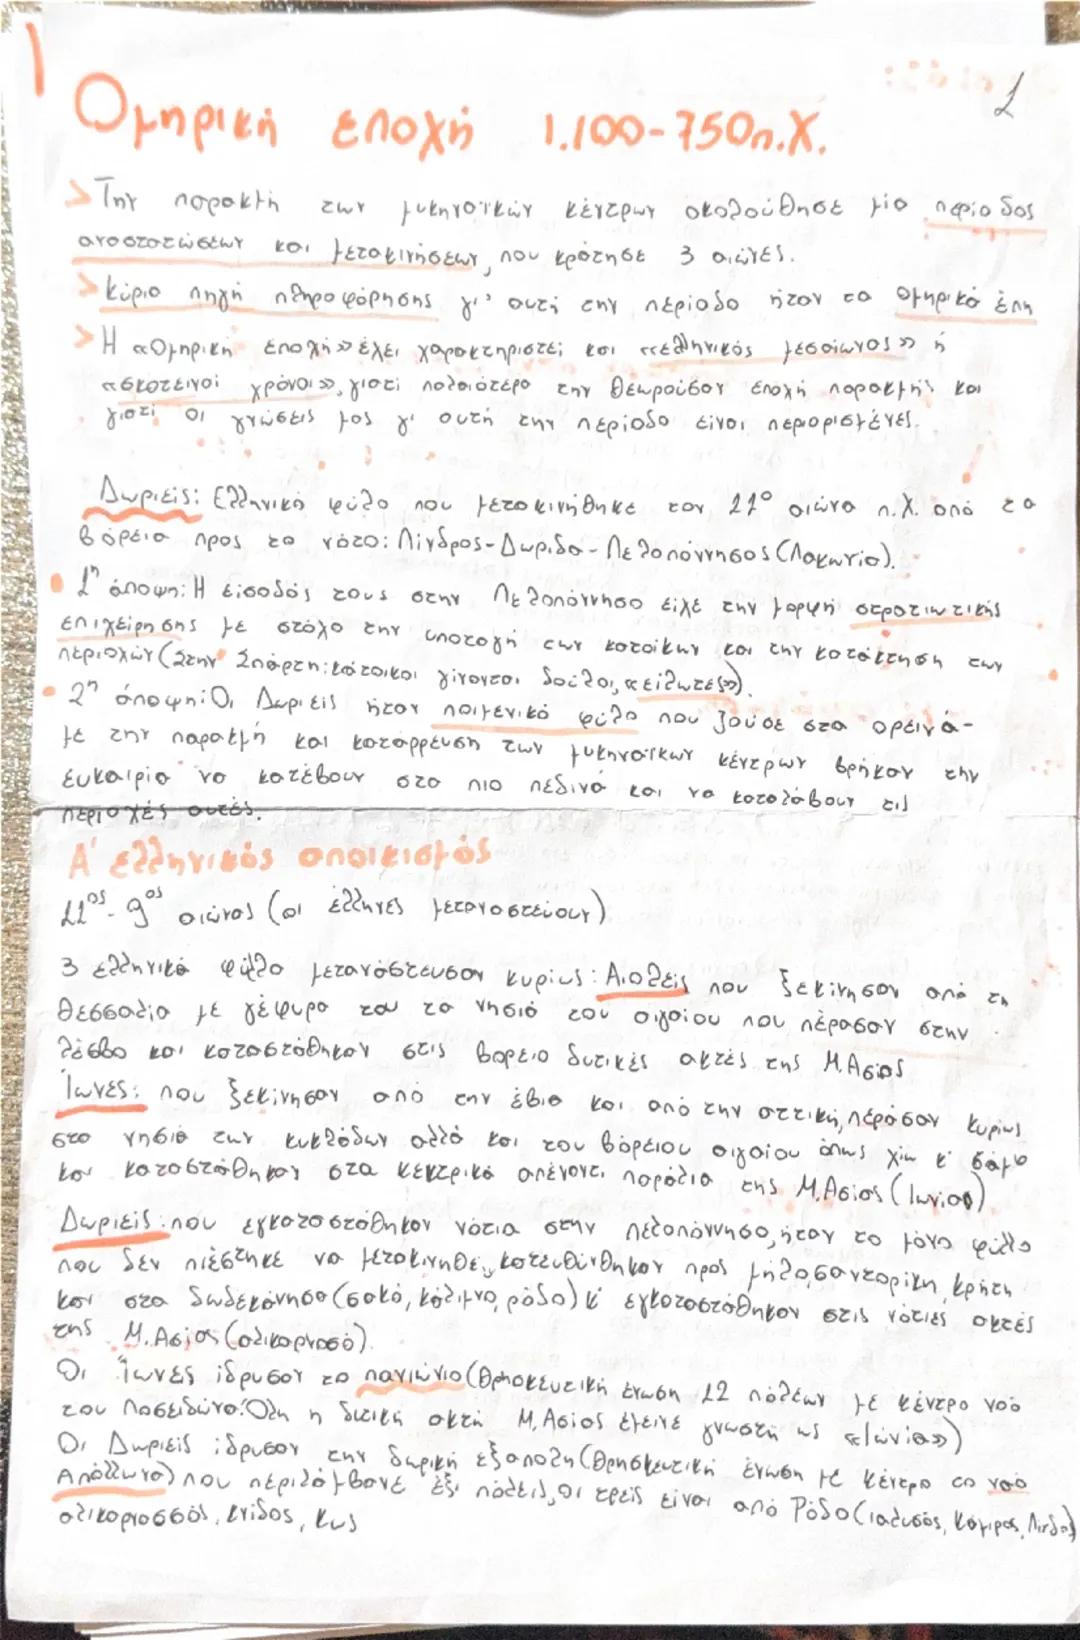 1
Ομηρική εποχή 1.100-750π.Χ.
> Την παρακμή των μυκηναϊκών κέντρων ακολούθησε μια περίοδος
αναστατώσεων και μετακινήσεων, που κράτησε 3 αιώνες.
> Κύρια πηγή πληροφόρησης γι' αυτή την περίοδο ήταν τα Ομηρικά έπη
> Η «Ομηρική εποχή» έχει χαρακτηριστεί και «ελληνικός μεσαίωνας» ή
«σκοτεινοί χρόνοι», γιατί παλαιότερα την θεωρούσαν εποχή παρακμής και
γιατί οι γνώσεις μας γι' αυτή την περίοδο είναι περιορισμένες.
Δωριείς: Ελληνικό φύλο που μετακινήθηκε τον 11° αιώνα π.Χ. από τα
βόρεια προς το νότο: Πίνδρος-Δωρίδα-Πελοπόννησος (Λακωνία).
• 1η άποψη: Η είσοδός τους στην Πελοπόννησο είχε την μορφή στρατιωτικής
επιχείρησης με στόχο την υποταγή των κατοίκων και την κατάκτηση των
περιοχών (Στην Σπάρτη: κάτοικοι γίνονται δούλοι, «είλωτες»).
• 2η άποψη: Οι Δωριείς ήταν ποιμενικό φύλο που ζούσε στα ορεινά-
με την παρακμή και κατάρρευση των μυκηναϊκών κέντρων βρήκαν την
ευκαιρία να κατέβουν στα πιο πεδινά και να καταλάβουν τις
περιοχές αυτές.
Α' ελληνικός αποικισμός
11ος-9ος αιώνας (οι έλληνες μεταναστεύουν)
3 ελληνικά φύλλα μετανάστευσαν κυρίως: Αιολείς που ξεκίνησαν από τη
θεσσαλία με γέφυρα του τα νησιά του αιγαίου που πέρασαν στην
λέσβο και καταστάθηκαν στις βόρειο δυτικές ακτές της Μ.Ασίας
Ίωνες: που ξεκίνησαν από την έβια και από την αττική, πέρασαν κυρίως
στα νησιά των κυκλάδων αλλά και του βόρειου αιγαίου όπως χίω κ' σάμο
και καταστάθηκαν στα κεντρικά απέναντι παράλια της Μ.Ασίας (Ιωνίας)
Δωριείς: που εγκαταστάθηκαν νότια στην πελοπόννησο, ήταν το μόνο φύλλο
που δεν πιέστηκε να μετακινηθεί, κατευθύνθηκαν προς μήλο, σαντορίνη, κρήτη
και στα δωδεκάνησα (σακό, κάλιμνο, ρόδο) κ' εγκαταστάθηκαν στις νότιες ακτές
της Μ.Ασίας (αλικαρνασό).
Οι Ίωνες ίδρυσαν το πανιώνιο (θρησκευτική ένωση 12 πόλεων με κέντρο ναό
του Ποσειδώνα. Όλη η δυτική ακτή Μ.Ασίας έμεινε γνωστή ως «Ιωνία»)
Οι Δωριείς ίδρυσαν την δωρική εξάπολη (θρησκευτική ένωση με κέντρο το ναό
Απόλλωνα) που περιλάμβανε έξι πόλεις, οι τρείς είναι από Ρόδο (ιαλυσός, Κάμιρος, Λίνδος)
αλικαρνασσός, κνίδος, κως